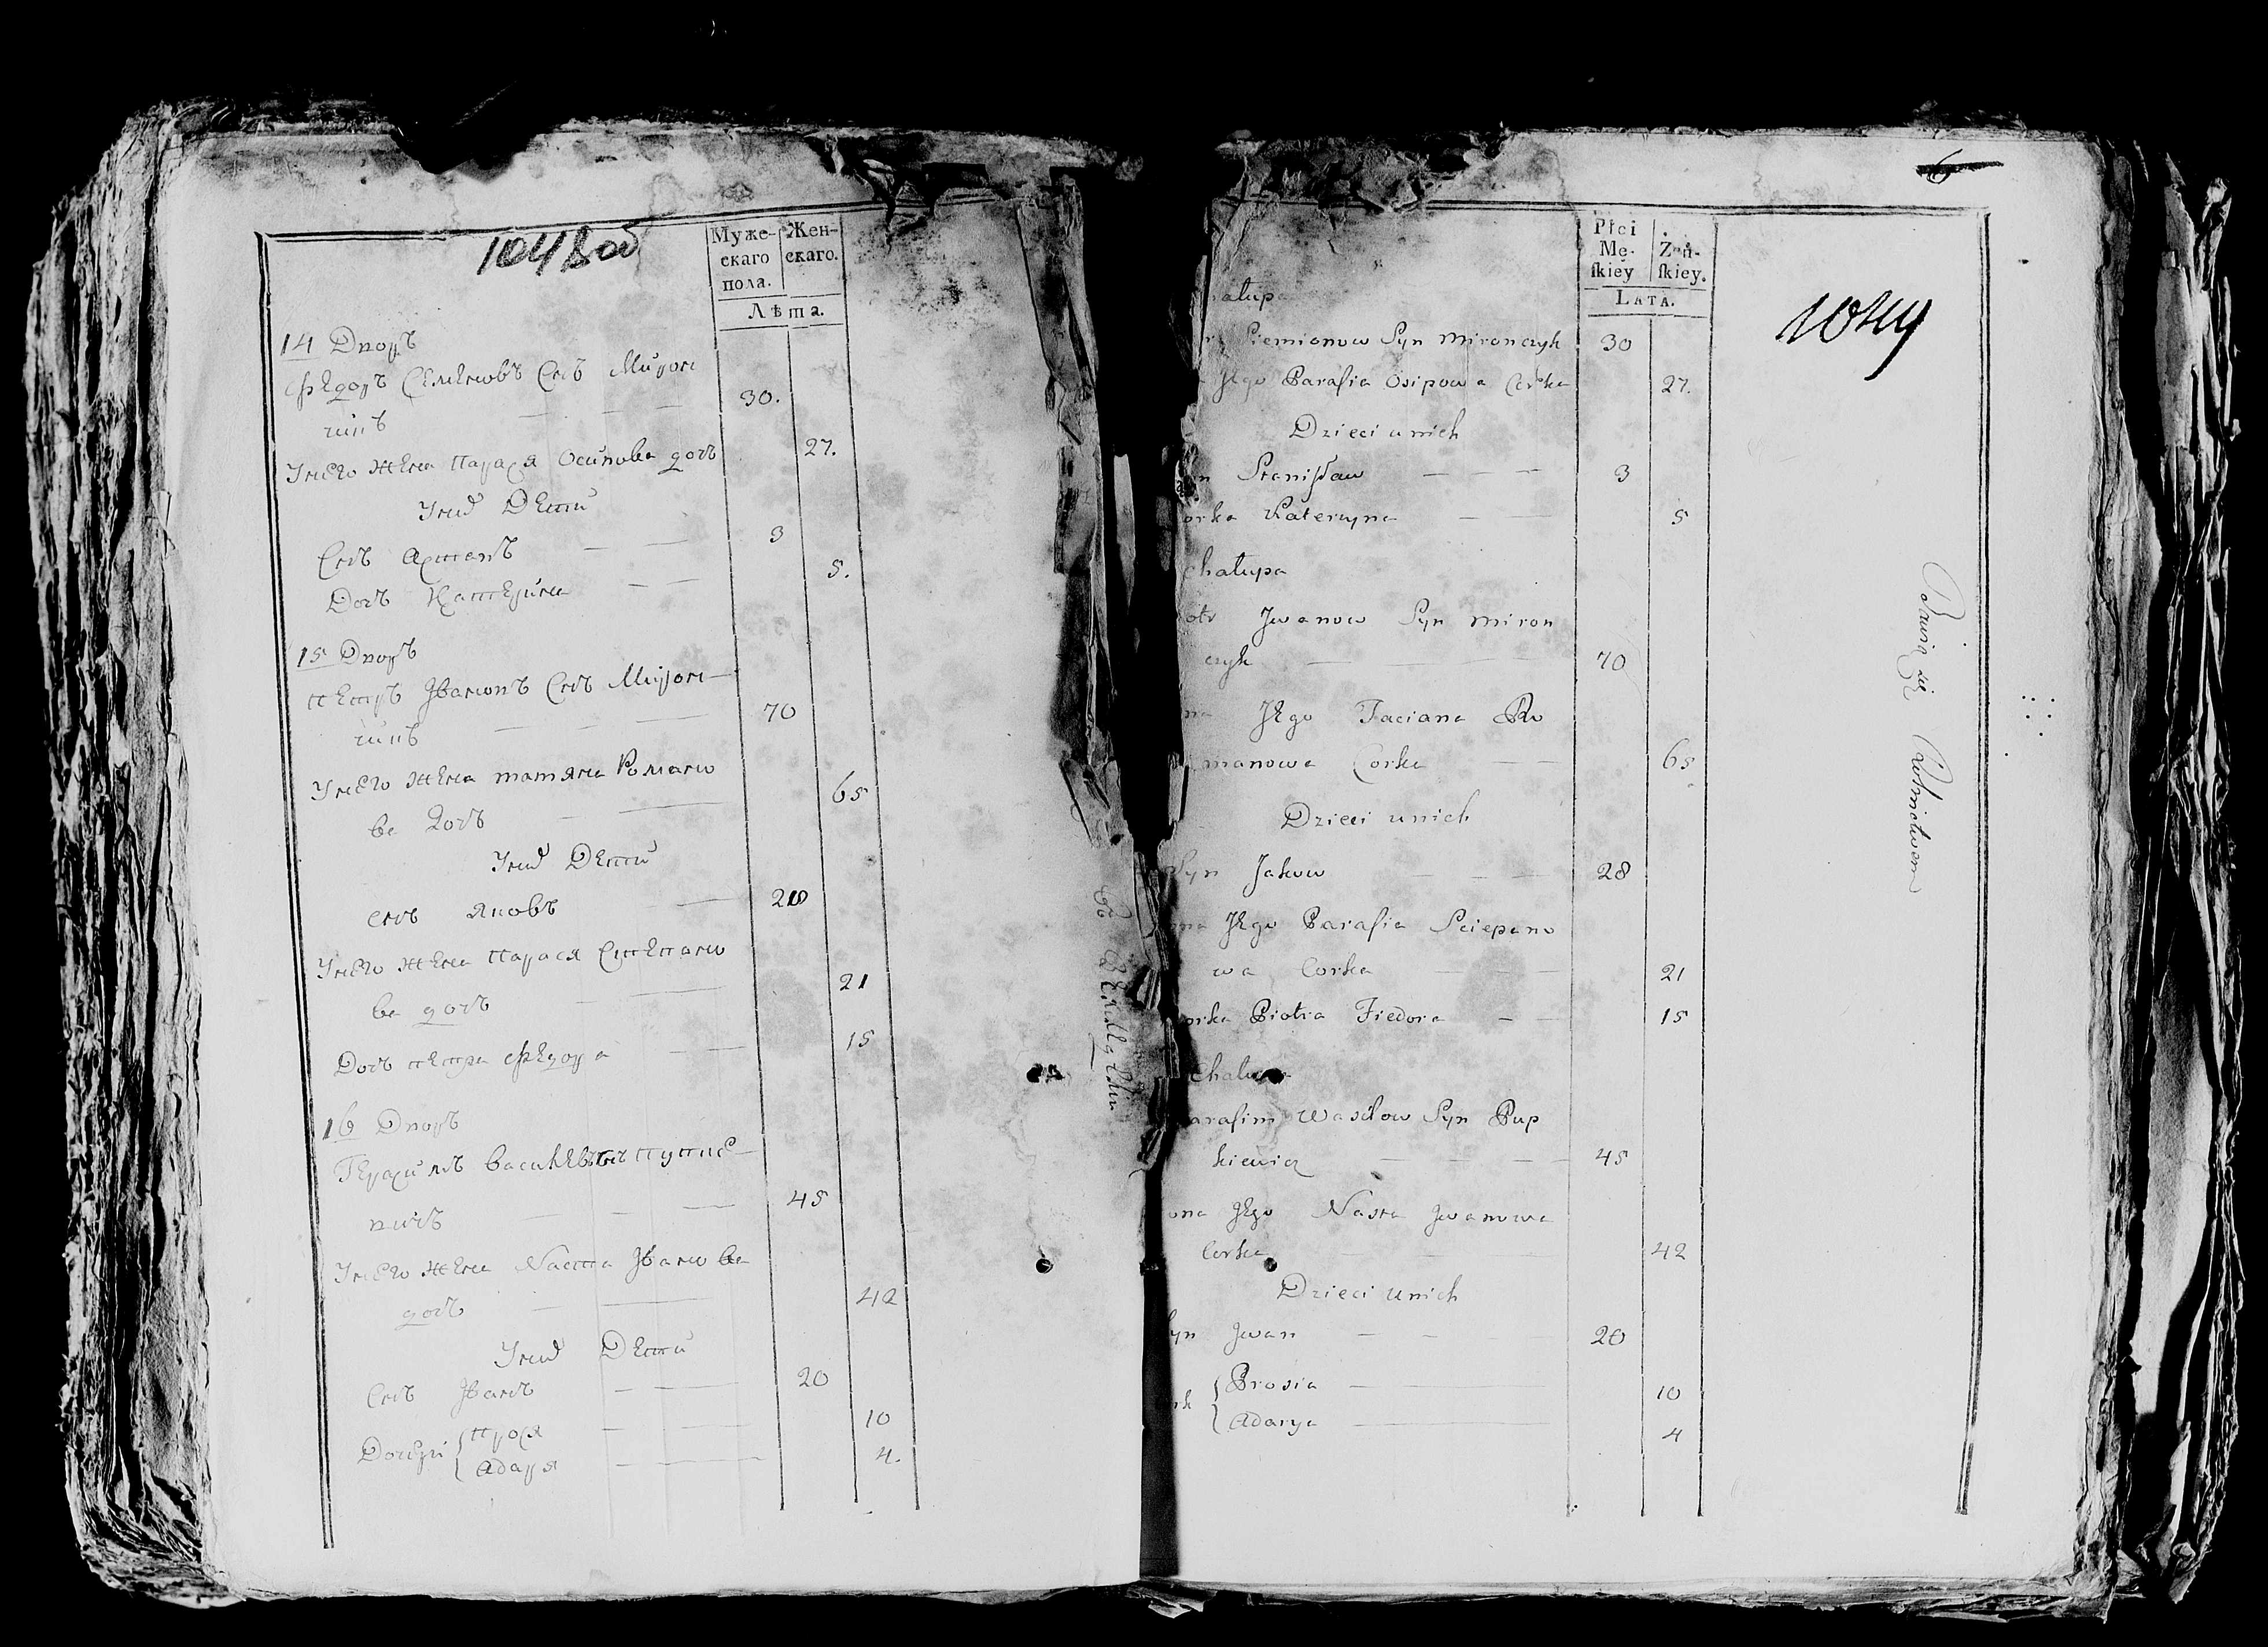 1048об
Муже-
скаго
пола.
Жен-
скаго.
Лѣта.
14 Дворъ
Федоръ Семеновъ Снъ Мирон
чикъ 30.
Унего жена Парася Осипова дочъ 27.
Унихъ Дети
Снъ Астапъ 3
Дочъ Катерина 5.
15 Дворъ
Петръ Ивановъ Снъ Мирон
чикъ 70
Унего жена Татяна Романо
ва Дочъ 65
Унихъ Дети
снъ Яковъ 28
Унего жена Парася Степано
ва дочъ 21
Дочъ Петра Федора 15
16 Дворъ
Герасимъ Василевъ Снъ Пупке
вичъ 45
Унего жена Наста Іванова
дочъ 42
Унихъ Дети
Снъ Іванъ 20
Дочери Прося 10
Адаря 4.
6
1049
Płci
Mę-
ſkiey
Żeń-
ſkiey.
LATA.
hałupa
Siemionow Syn Mironczyk 30
Jego Parasia Osipowa Corka 27.
Dzieci unich
n Stanisław 3
orka Katerzyna 5
Chałupa
otr Jwanow Syn Miron
czyk 70
na Jego Taciana Ro
manowa Corka 65
Dzieci unich
Syn Jakow 28
ona Jego Parasia Sciepano
wa Corka 21
orka Piotra Fiedora 15
Chałupa
arasim Wasilow Syn Pup
kiewicz 45
ona Jego Nasta Jwanowa
Corka 42
Dzieci unich
Syn Jwan 20
rk Prosia 10
Adarya 4
Bawią się Rolnictwem